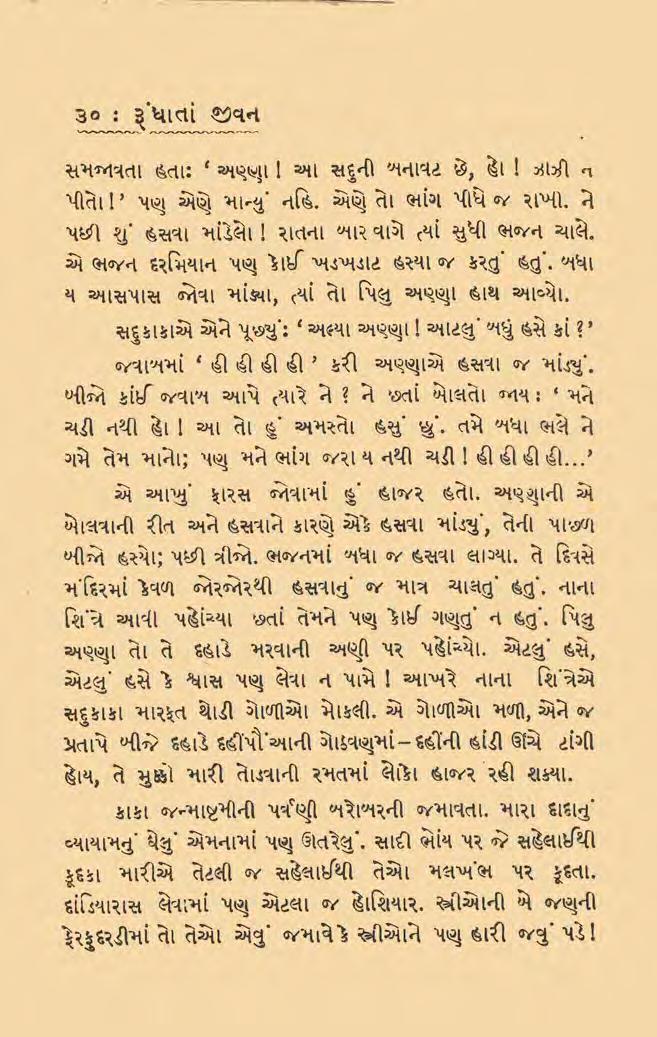 ૩૦ : રૂંધાતાં જીવન
સમજાવતા હતાઃ ‘ અણ્ણા ! આ સદુની બનાવટ છે, હો ! ઝાઝી ન
પીતો !’ પણ એણે માન્યું નહિ. એણે તો ભાંગ પીધે જ રાખી. ને
પછી શું હસવા માંડેલો ! રાતના બાર વાગે ત્યાં સુધી ભજન ચાલે.
એ ભજન દરમિયાન પણ કોઈ ખડખડાટ હસ્યા જ કરતું હતું. બધા
ય આસપાસ જોવા માંડ્યા, ત્યાં તો પિલુ અણ્ણા હાથ આવ્યો.
સદુકાકાએ એને પૂછયું : ‘ અલ્યા અણ્ણા ! આટલું બધું હસે કાં ?’
જવાબમાં ‘ હી હી હી હી ’ કરી અણ્ણાએ હસવા જ માંડ્યું.
બીજો કાંઈ જવાબ આપે ત્યારે ને ? ને છતાં બોલતો જાય : ‘ મને
ચડી નથી હો ! આ તો હું અમસ્તો હસું છું. તમે બધા ભલે ને
ગમે તેમ માનો; પણ મને ભાંગ જરા ય નથી ચડી ! હી હી હી હી...’
એ આખું ફારસ જોવામાં હું હાજર હતો. અણ્ણાની એ
બોલવાની રીત અને હસવાને કારણે એકે હસવા માંડ્યું, તેની પાછળ
બીજો હસ્યો; પછી ત્રીજો. ભજનમાં બધા જ હસવા લાગ્યા. તે દિવસે
મંદિરમાં કેવળ જોરજોરથી હસવાનું જ માત્ર ચાલતું હતું. નાના
શિંત્રે આવી પહોંચ્યા છતાં તેમને પણ કોઈ ગણતું ન હતું. પિલુ
અણ્ણા તો તે દહાડે મરવાની અણી પર પહોંચ્યો. એટલું હસે,
એટલું હસે કે શ્વાસ પણ લેવા ન પામે ! આખરે નાના શિંત્રેએ
સદુકાકા મારફત થોડી ગોળીઓ મોકલી. એ ગોળીઓ મળી, એને જ
પ્રતાપે બીજે દહાડે દહીંપૌંઆની ગોઠવણમાં–દહીંની હાંડી ઊંચે ટાંગી
હોય, તે મુક્કો મારી તોડવાની રમતમાં લોકો હાજર રહી શક્યા.
કાકા જન્માષ્ટમીની પર્વણી બરોબરની જમાવતા. મારા દાદાનું
વ્યાયામનું ઘેલું એમનામાં પણ ઊતરેલું. સાદી ભોંય પર જે સહેલાઈથી
કૂદકા મારીએ તેટલી જ સહેલાઈથી તેઓ મલખંભ પર કૂદતા.
દાંડિયારાસ લેવામાં પણ એટલા જ હોશિયાર. સ્ત્રીઓની બે જણની
ફેરફુદરડીમાં તો તેઓ એવું જમાવે કે સ્ત્રીઓને પણ હારી જવું પડે !